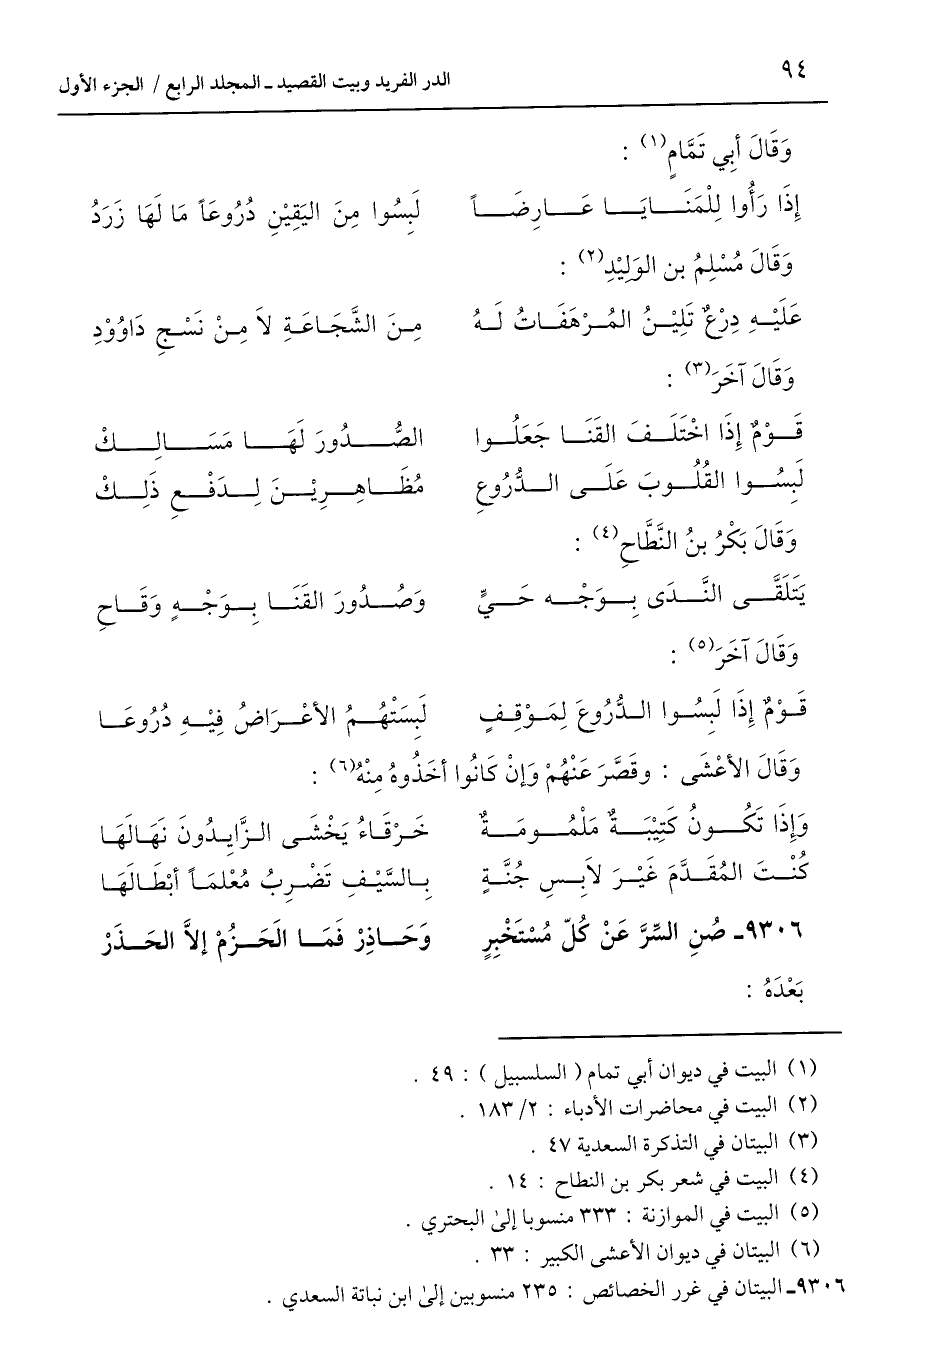 ٩٤
الدر الفريد وبيت القصيد ـ المجلد الرابع / الجزء الأول
وَقَالَ أَبِي تَمَّامٍ(١) :
إِذَا رَأَوا لِلْمَنَايَا عَارِضَاً لَبِسُوا مِنَ اليَقِيْنِ دُرُوعَاً مَا لَهَا زَرَدُ
وَقَالَ مُسْلِمُ بن الوَلِيْدِ(٢) :
عَلَيْهِ دِرْعٌ تَلِيْنُ المُرْهَفَاتُ لَهُ مِنَ الشَّجَاعَةِ لاَ مِنْ نَسْجِ دَاوُوْدِ
وَقَالَ آخَرَ(٣) :
قَوْمٌ إِذَا اخْتَلَفَ القَنَا جَعَلُوا الصُّدُورَ لَهَا مَسَالِكْ
لَبِسُوا القُلُوبَ عَلَى الدُّرُوعِ مُظَاهِرِيْنَ لِدَفْعِ ذَلِكْ
وَقَالَ بَكْرُ بنُ النَّطَّاحِ(٤) :
يَتَلَقَّى النَّدَى بِوَجْهٍ حَيِيٍّ وَصُدُورَ القَنَا بِوَجْهٍ وَقَاحِ
وَقَالَ آخَرَ(٥) :
قَوْمٌ إِذَا لَبِسُوا الدُّرُوعَ لِمَوْقِفٍ لَبِسَتْهُمُ الأَعْرَاضُ فِيْهِ دُرُوعَا
وَقَالَ الأَعْشَى : وقَصَّرَ عَنْهُمْ وَإِنْ كَانُوا أَخَذُوهُ مِنْهُ(٦) :
وَإِذَا تَكُونُ كَتِيْبَةٌ مَلْمُومَةٌ خَرْقَاءُ يَخْشَى الزَّايِدُونَ نَهَالَهَا
كُنْتَ المُقَدَّمَ غَيْرَ لاَبِسِ جُنَّةٍ بِالسَّيْفِ تَضْرِبُ مُعْلَمَاً أَبْطَالَهَا
٩٣٠٦ـ صُنِ السِّرَّ عَنْ كُلِّ مُسْتَخْبِرٍ وَحَاذِرْ فَمَا الحَزْمُ إِلاَّ الحَذَرْ
بَعْدَهُ :
(١) البيت في ديوان أبي تمام ( السلسبيل ) : ٤٩ .
(٢) البيت في محاضرات الأدباء : ٢/ ١٨٣ .
(٣) البيتان في التذكرة السعدية ٤٧ .
(٤) البيت في شعر بكر بن النطاح : ١٤ .
(٥) البيت في الموازنة : ٣٣٣ منسوبا إلىٰ البحتري .
(٦) البيتان في ديوان الأعشى الكبير : ٣٣ .
٩٣٠٦ـ البيتان في غرر الخصائص : ٢٣٥ منسوبين إلىٰ ابن نباتة السعدي .